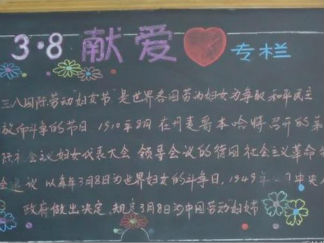 3·8 献爱 专栏
三八国际劳动妇女节"是世界各国劳动妇女为争取和平民主
而斗争的节日 1910年8月 在丹麦哥本哈特召开的第
际社会议妇女代表大会 领导会议的德国社会主义革命
建议 以每年3月8日为世界妇女的斗争日,1949年 中央人
政府做出决定 规定3月8日为中国劳动妇女节